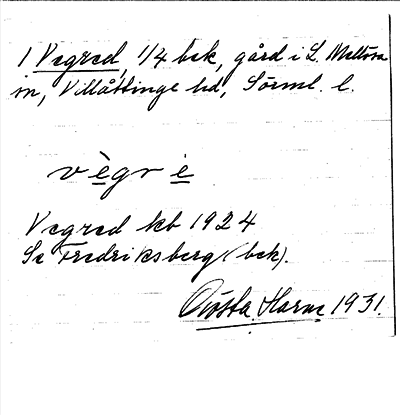 1 Vegred, 1/4 bek, gård i L. Mellösa
sn, Villåttinge hd, Sörml. l.
vègr è
Vegred kb 1924
Se Fredriksberg (bek).
Gösta Harne 1931.